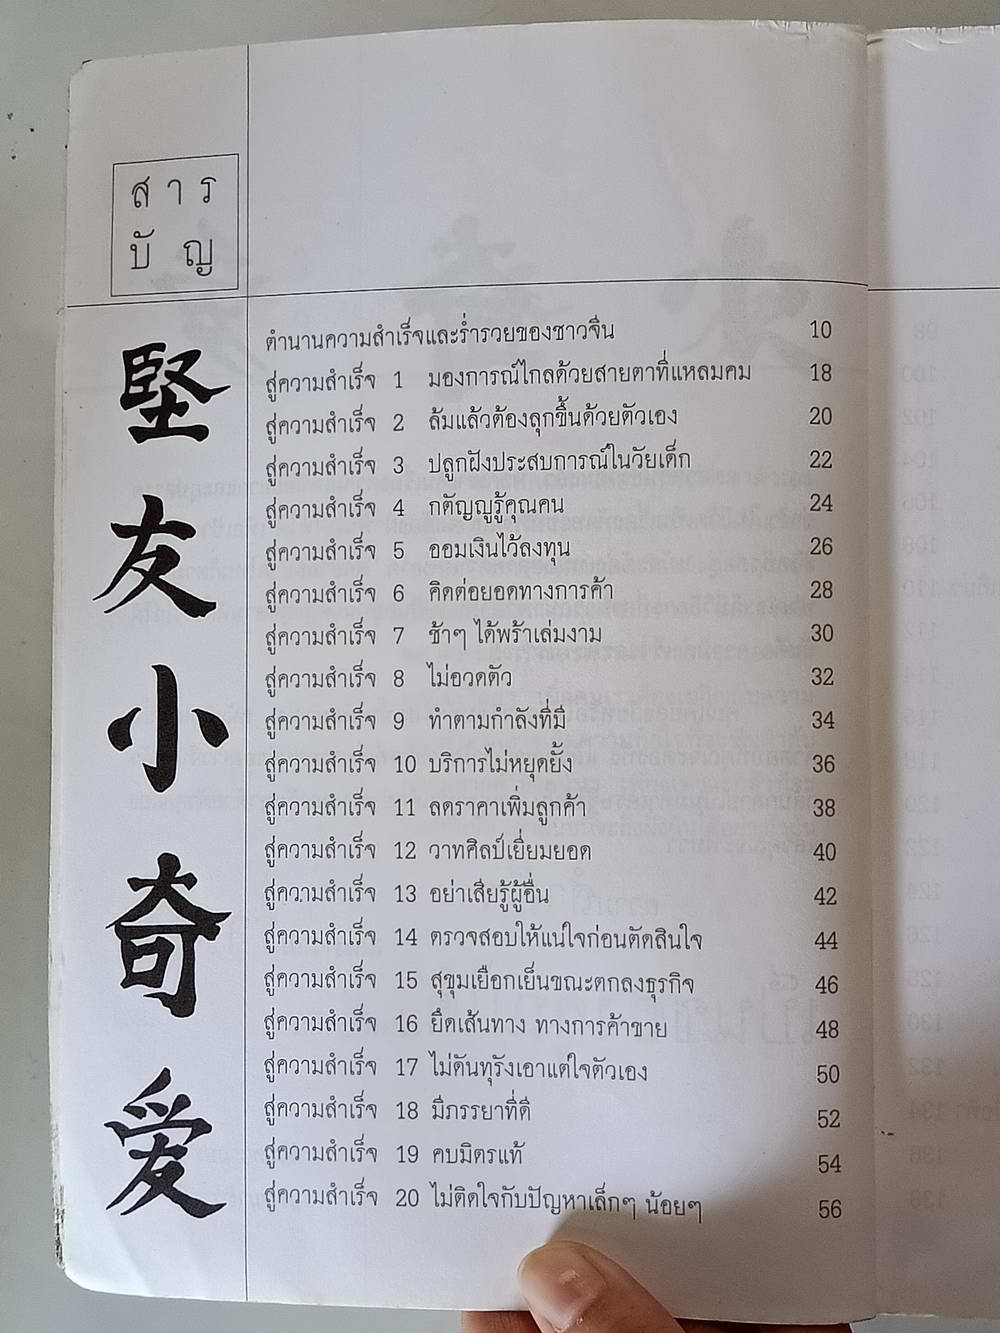 สาร
บัญ
堅
友
小
奇
愛
ตำนานความสำเร็จและร่ำรวยของชาวจีน 10
สู่ความสำเร็จ 1 มองการณ์ไกลด้วยสายตาที่แหลมคม 18
สู่ความสำเร็จ 2 ล้มแล้วต้องลุกขึ้นด้วยตัวเอง 20
สู่ความสำเร็จ 3 ปลูกฝังประสบการณ์ในวัยเด็ก 22
สู่ความสำเร็จ 4 กตัญญูรู้คุณคน 24
สู่ความสำเร็จ 5 ออมเงินไว้ลงทุน 26
สู่ความสำเร็จ 6 คิดต่อยอดทางการค้า 28
สู่ความสำเร็จ 7 ช้าๆ ได้พร้าเล่มงาม 30
สู่ความสำเร็จ 8 ไม่อวดตัว 32
สู่ความสำเร็จ 9 ทำตามกำลังที่มี 34
สู่ความสำเร็จ 10 บริการไม่หยุดยั้ง 36
สู่ความสำเร็จ 11 ลดราคาเพิ่มลูกค้า 38
สู่ความสำเร็จ 12 วาทศิลป์เยี่ยมยอด 40
สู่ความสำเร็จ 13 อย่าเสียรู้ผู้อื่น 42
สู่ความสำเร็จ 14 ตรวจสอบให้แน่ใจก่อนตัดสินใจ 44
สู่ความสำเร็จ 15 สุขุมเยือกเย็นขณะตกลงธุรกิจ 46
สู่ความสำเร็จ 16 ยึดเส้นทาง ทางการค้าขาย 48
สู่ความสำเร็จ 17 ไม่ดันทุรังเอาแต่ใจตัวเอง 50
สู่ความสำเร็จ 18 มีภรรยาที่ดี 52
สู่ความสำเร็จ 19 คบมิตรแท้ 54
สู่ความสำเร็จ 20 ไม่ติดใจกับปัญหาเล็กๆ น้อยๆ 56